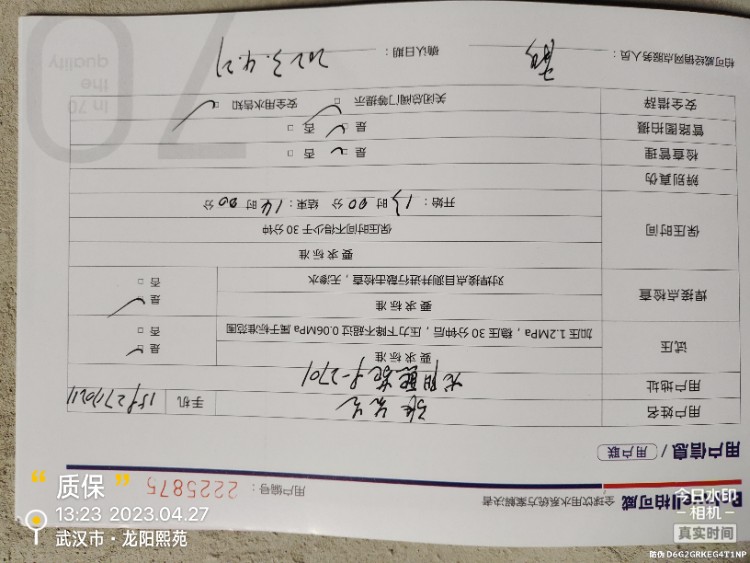 柏可威
全球饮用水系统方案解决者
用户编号：2225875
用户信息 / 用户联
用户姓名
手机
用户地址
龙阳熙苑 9-2701
试压
要求标准
加压1.2MPa，稳压30分钟后，压力下降不超过0.06MPa属于标准范围
是 □
否 □
焊接点检查
要求标准
对焊接点目测并进行敲击检查，无渗水
是 □
否 □
保压时间
要求标准
保压时间不得少于30分钟
开始：13时00分 结束：14时00分
辨别真伪
检查管理
是 □ 否 □
管路图拍摄
是 □ 否 □
安全措辞
关闭总阀门等提示 □ 安全用水告知 □
柏可威经销网点服务人员：
确认日期：2023.4.27
In 70
the
quality
70
“质保”
13:23 2023.04.27
武汉市·龙阳熙苑
今日水印
相机
真实时间
防伪 D6G2GRKEG4T1NP